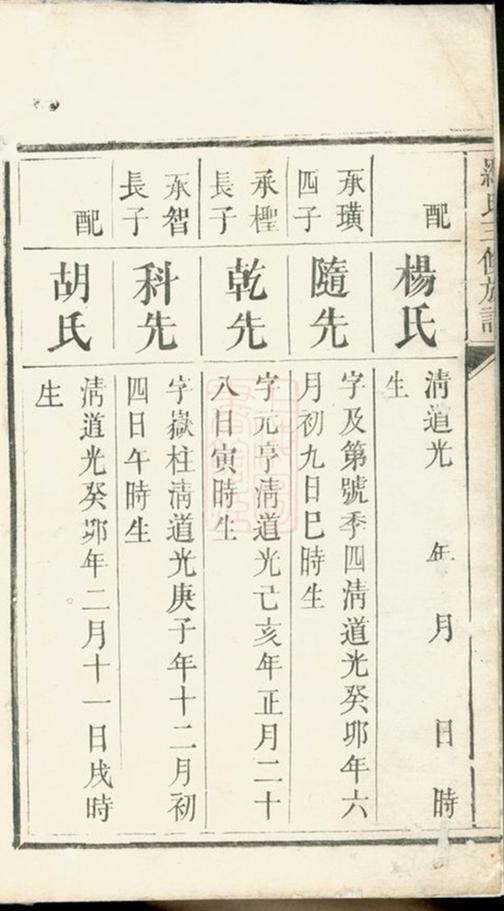 氏三修族譜
配
楊氏
清道光 年 月 日 時
生
承璜
四子
隨先
字及第號季四清道光癸卯年六
月初九日巳時生
承檉
長子
乾先
字元亨清道光己亥年正月二十
八日寅時生
承智
長子
科先
字嶽柱清道光庚子年十二月初
四日午時生
配
胡氏
清道光癸卯年二月十一日戌時
生